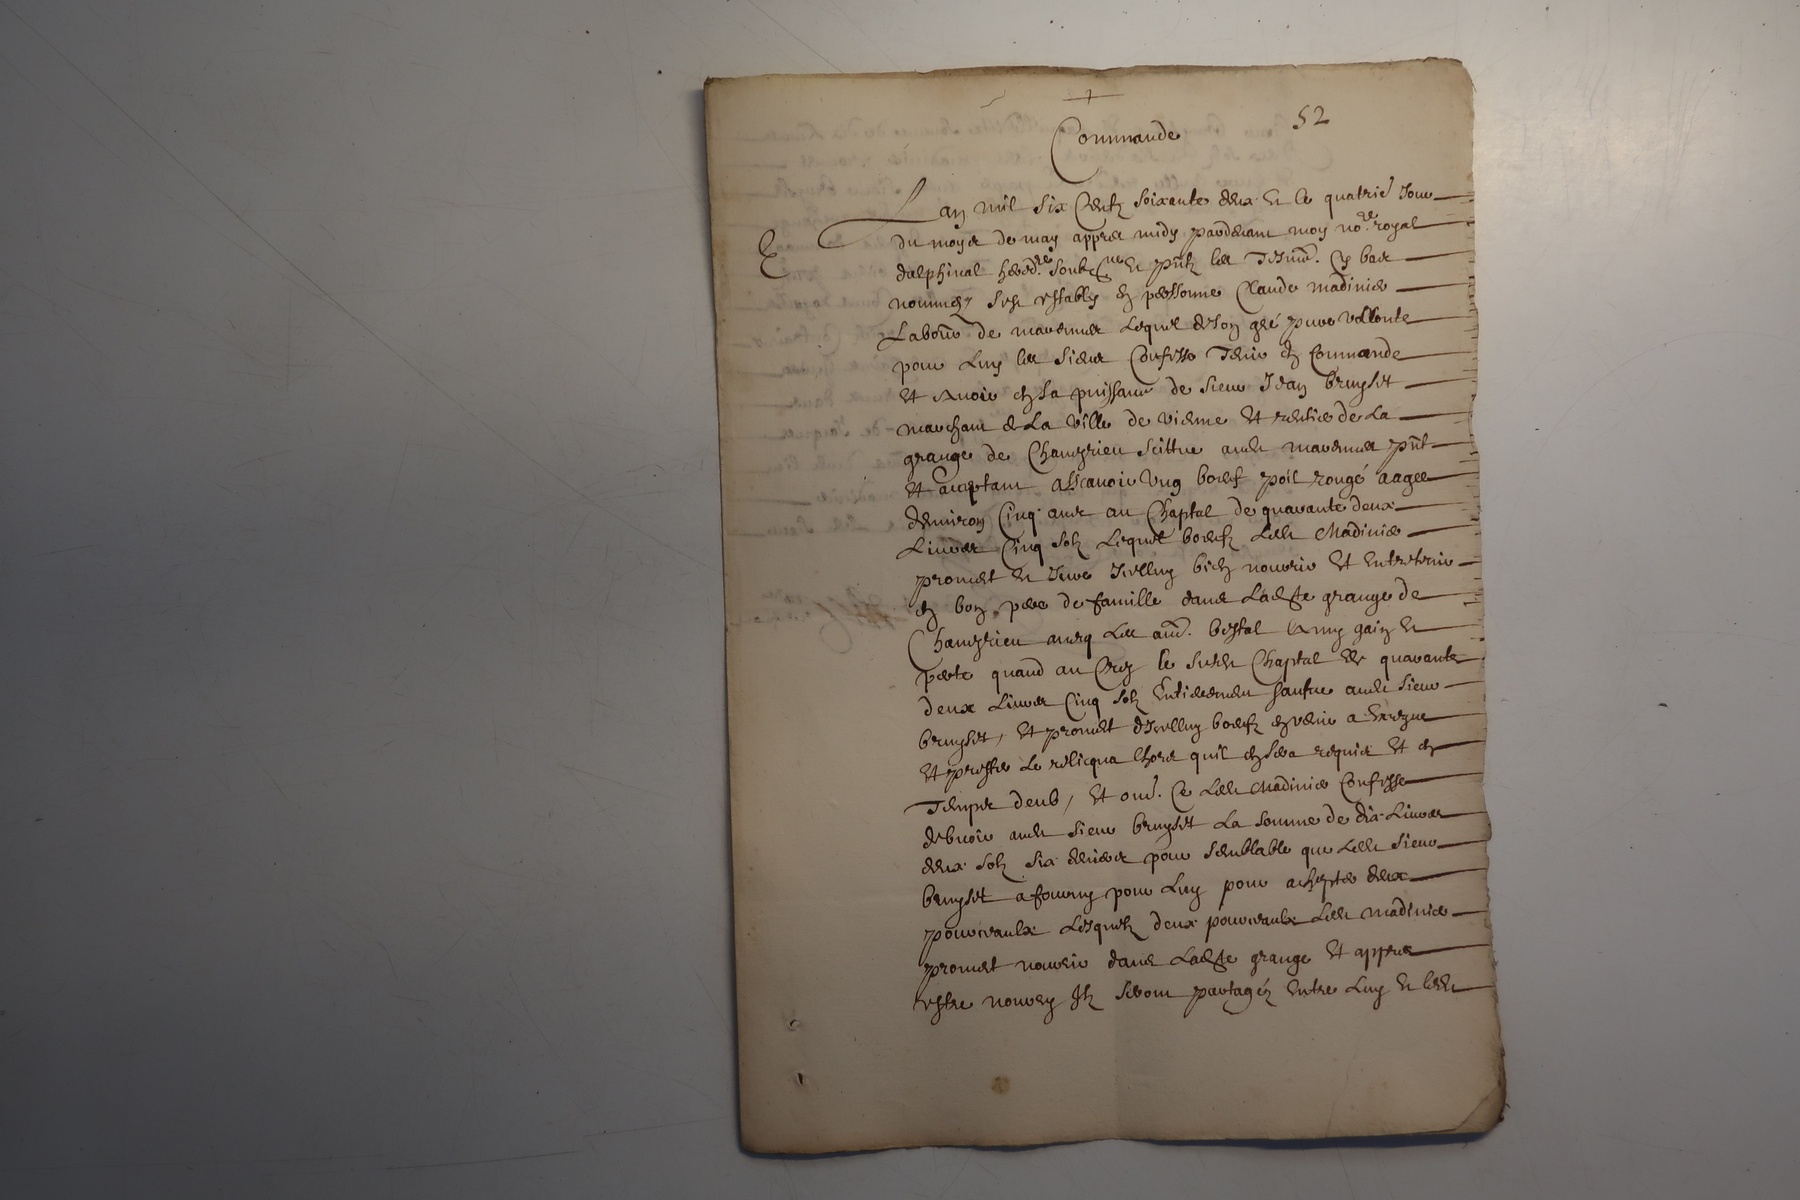 52
Commande
Lan mil six centz soixante deux et le quatrie Jour
du moys de may appres midy pardevant moy nore royal
dalphinal heredre soubzne et pntz les tesmz cy bas
nommes sest estably en personne Claude madinier
Labour de mavennes Lequel de son gre pure vollonte
pour Luy les siens Confesse Tenir en Commande
et avoir en sa puissance de sieur Jean bruyset
marchant de La ville de vienne et rentier de La
grange de Chamyrieu scittue audt mavennes pnt
et acceptant assavoir ung boeuf poil rouge aage
denviron Cinq ans au Chaptal de quarante deux
Livres Cinq solz Lequel boeufz Ledt Madinier
promet et Jure Jcelluy bien nourrir et entretenir
en bon pere de famille dans Ladte grange de
Chamyrieu avecq Les aud. bestal a my gain et
perte quand au Croy le susdt Chaptal de quarante
deux Livres Cinq solz Entierement saufve audt sieur
bruyset, et promet dJcelluy boeufz en venir a Exegue
et prester Le relicqua Lhors quil en sera requis et en
Temps deub, et oud. Ce Ledt Madinier Confesse
debvoir audt sieur bruyset La somme de dix Livres
deux solz six deniers pour semblable que Ledt sieur
bruyset a fourny pour Luy pour achepter deux
pourceaulx Lesquelz deux pourceaulx Ledt madinier
promet nourrir dans Ladte grange et appres
estre nourry Jlz seront partagéz entre Luy et ledt